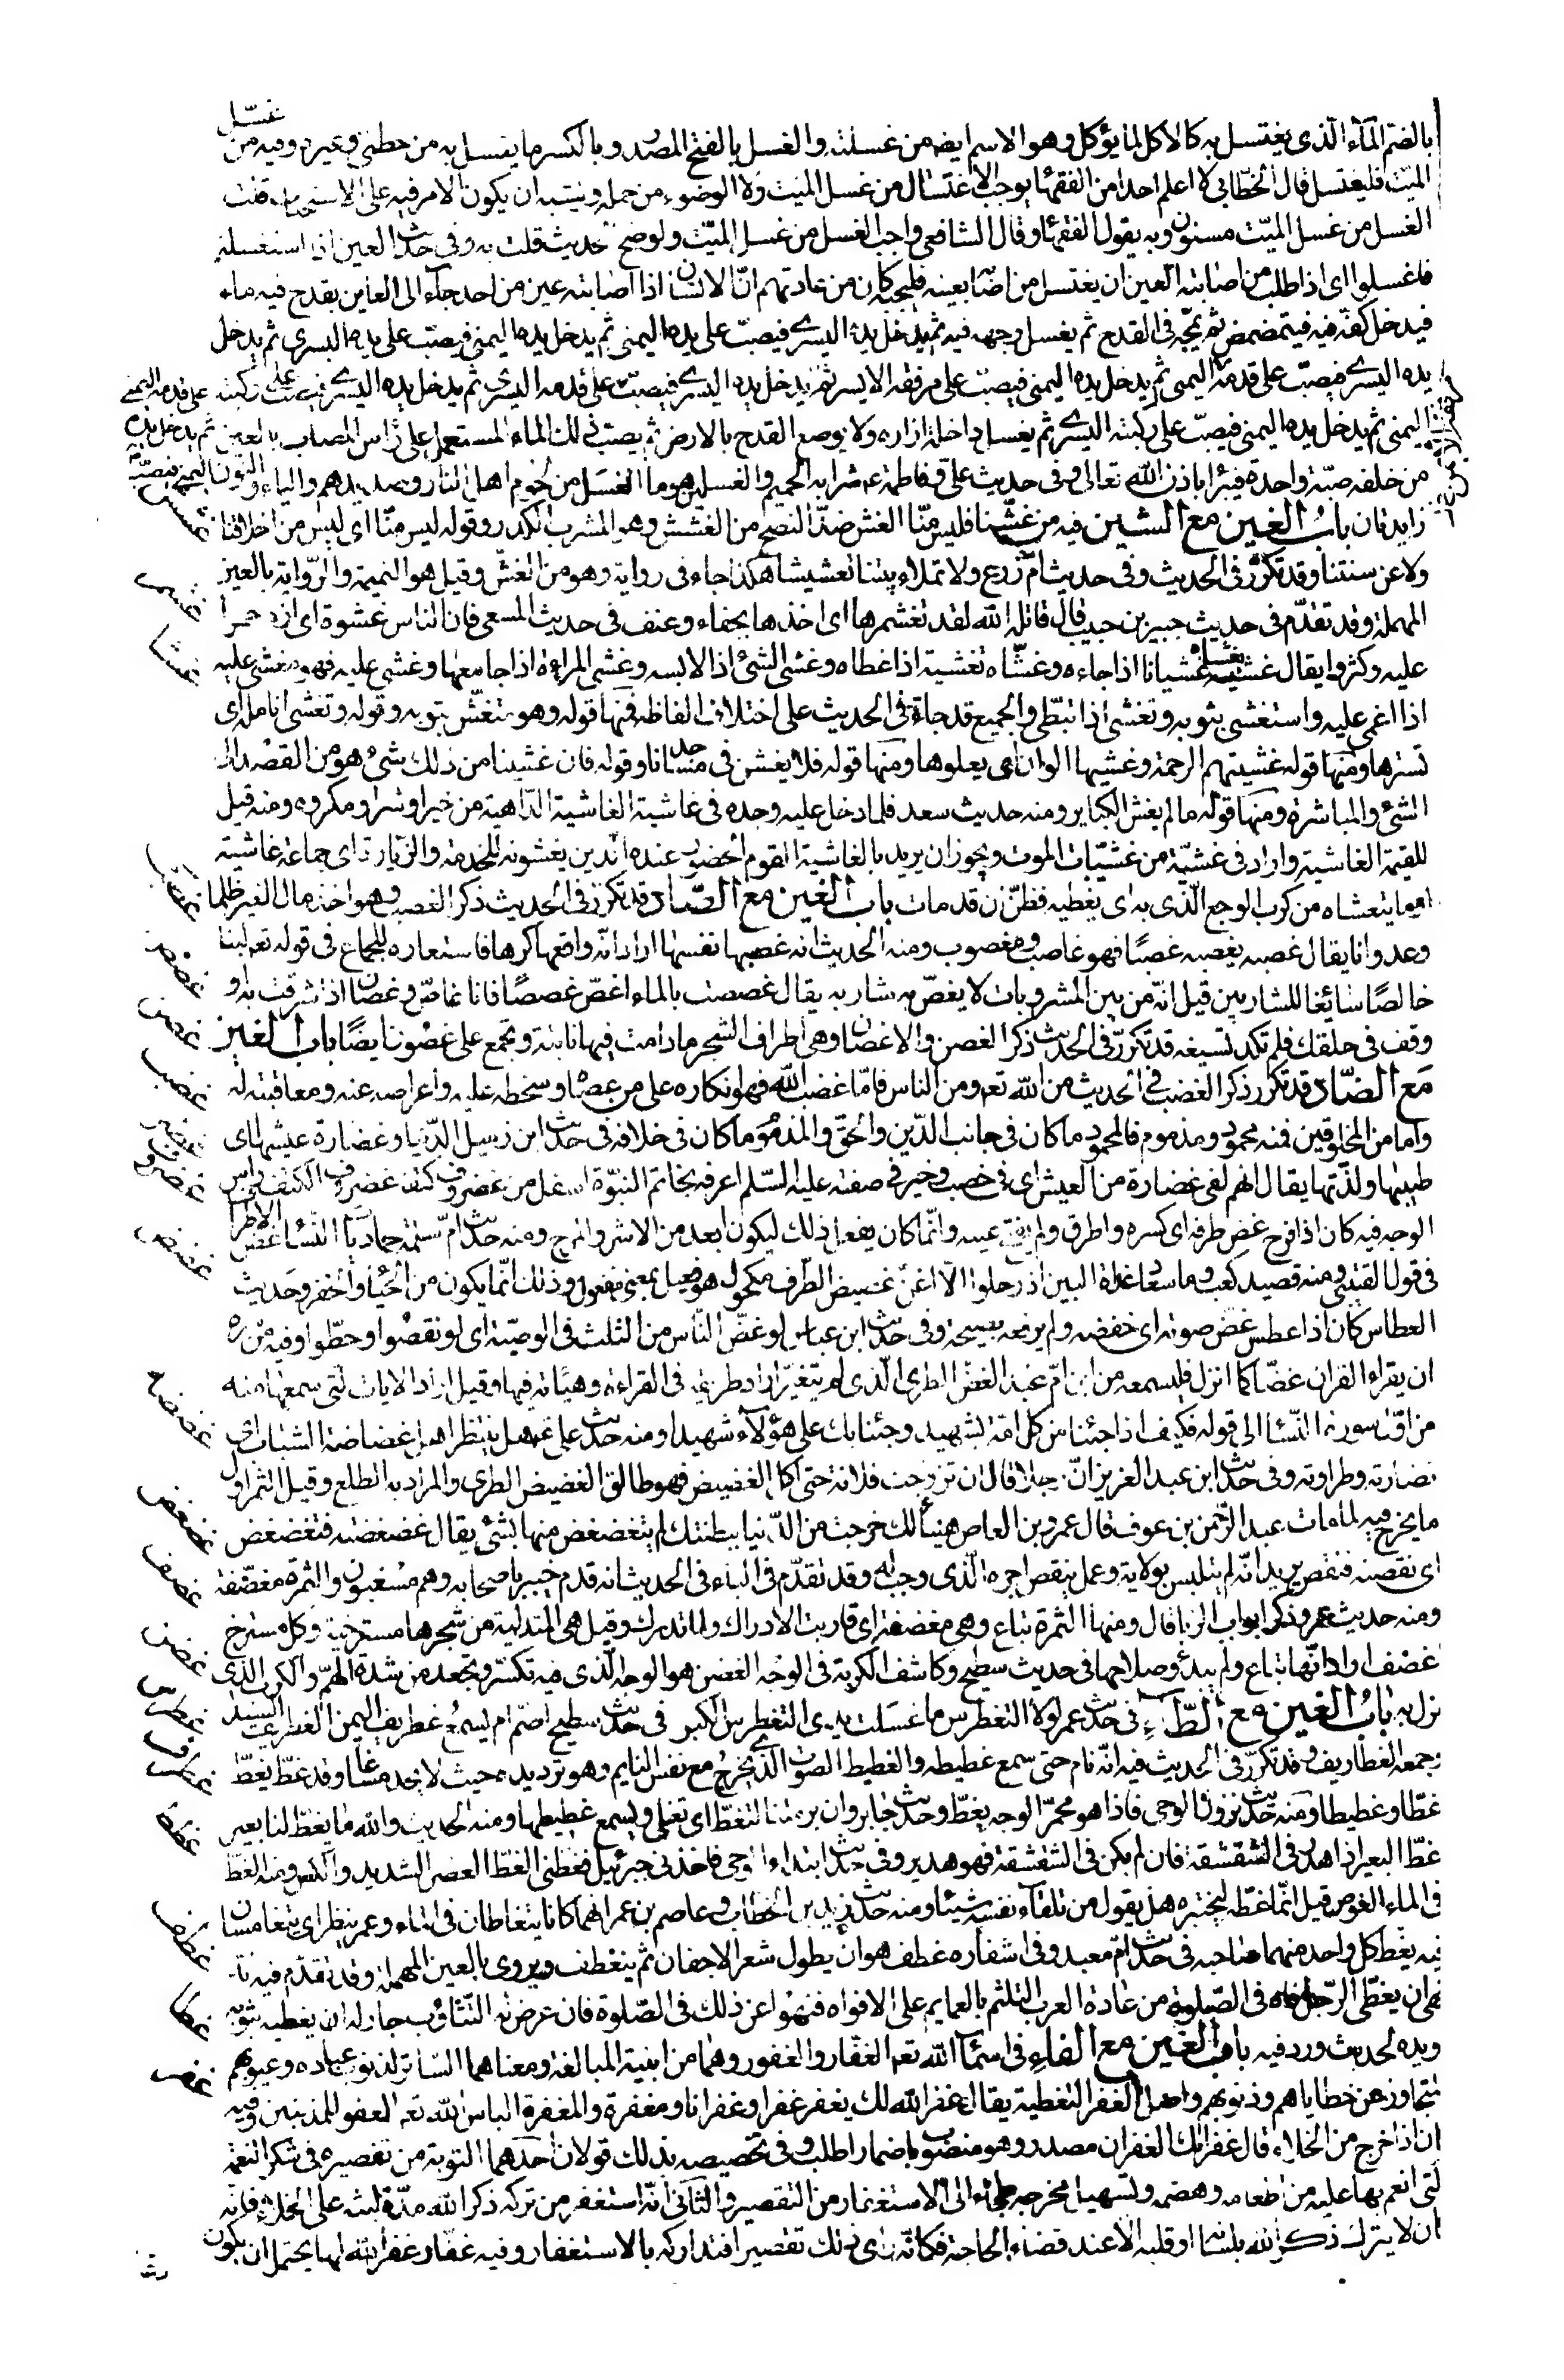 غسل
بالضم الماء الذى يغتسل به كالاكل لما يؤكل وهو الاسم ايضا من غسلته والغسل بالفتح المصدر وبالكسر ما يغسل به من خطمى وغيره وفيه من
الميت فليغتسل قال الخطابى لا اعلم احدا من الفقهاء يوجب الاغتسال من غسل الميت ولا الوضوء من حمله ويشبه ان يكون الامر فيه على الاستحباب قلت
الغسل من غسل الميت مسنون وبه يقول الفقهاء وقال الشافعى واجب الغسل من غسل الميت ولو صح حديث قلت به وفى حديث العين اذا استغسلتم
فاغسلوا اى اذا طلب من اصابته العين ان يغتسل من اصابه بعينه فليجبه كان من عادتهم ان الانسان اذا اصابته عين من احد جاء الى العاين بقدح فيه ماء
فيدخل كفه فيه فيتمضمض ثم يمجه فى القدح ثم يغسل وجهه فيه ثم يدخل يده اليسرى فيصب على يده اليمنى ثم يدخل يده اليمنى فيصب على يده اليسرى ثم يدخل
يده اليسرى فيصب على مرفقه اليمنى ثم يدخل يده اليمنى فيصب على مرفقه الايسر ثم يدخل يده اليسرى فيصب على قدمه اليسرى ثم يدخل يده اليسرى فيصب على ركبته
اليمنى ثم يدخل يده اليمنى فيصب على ركبته اليسرى ثم يغسل داخلة ازاره ولا يوضع القدح بالارض ثم يصب ذلك الماء المستعمل على راس المصاب بالعين
على قدمه اليمنى ثم يدخل يده اليمنى فيصب
من خلفه صبة واحدة فيبرأ باذن الله تعالى وفى حديث على وفاطمة شرابه الحميم والغسلين هو ما انغسل من لحوم اهل النار وصديدهم والياء والنون
زايدتان باب الغين مع الشين فيه من غشنا فليس منا الغش ضد النصح من الغشش وهو المشرب الكدر وقوله ليس منا اى ليس من اخلاقنا
غشش
ولا عن سنتنا وقد تكرر فى الحديث وفى حديث ام زرع ولا تملاء بيتنا تغشيشا هكذا جاء فى رواية وهو من الغش وقيل هو النميمة والرواية بالعين
غشمر
المهملة وقد تقدم فى حديث جبير بن حبيب قال قاتله الله لقد تغشمرها اى اخذها بجفاء وعنف فى حديث المسعى فان الناس غشوه اى ازدحموا
غشا
عليه وكثروا يقال غشيه يغشاه غشيانا اذا جاءه وغشاه تغشية اذا غطاه وغشى الشئ اذا لابسه وغشى المراءة اذا جامعها وغشى عليه فهو مغشى عليه
اذا اغمى عليه واستغشى بثوبه وتغشى اذا تغطى والجميع قد جاء فى الحديث على اختلاف الفاظه فمنها قوله وهو متغش بثوبه وقوله وتغشى انامله اى
تسترها ومنها قوله غشيتهم الرحمة وغشيها الوان اى يعلوها ومنها قوله فلا يغشن فى مساجدنا وقوله فان غشينا من ذلك شئ هو من القصد الى
الشئ والمباشرة ومنها قوله ما لم يغش الكبائر ومنه حديث سعد فلما دخل عليه وجده فى غاشية الغاشية الداهية من خير او شر او مكروه ومنه قيل
للقيمة الغاشية واراد فى غشية من غشيات الموت ويجوز ان يريد بالغاشية القوم الحضور عنده الذين يغشونه للخدمة والزيارة اى جماعة غاشية
او ما يتغشاه من كرب الوجع الذى به اى يغطيه فظن ان قد مات باب الغين مع الصاد قد تكرر فى الحديث ذكر الغصب وهو اخذ مال الغير ظلما
غصب
وعدوانا يقال غصبه يغصبه غصبا فهو غاصب ومغصوب ومنه الحديث انه غصبها نفسها اراد انه واقعها كرها فاستعاره للجماع فى قوله تعه لبنا
غصص
خالصا سائغا للشاربين قيل انه من بين المشروبات لا يغص به شاربه يقال غصصت بالماء اغص غصصا فانا غاص وغصان اذا شرقت به او
غصن
وقف فى حلقك فلم تكد تسيغه قد تكرر فى الحديث ذكر الغصن والاغصان وهى اطراف الشجر ما دامت فيها نابتة وتجمع على غصون ايضا باب الغين
غضب
مع الضاد قد تكرر ذكر الغضب فى الحديث من الله تعه ومن الناس فاما غضب الله فهو انكاره على من عصاه وسخطه عليه واعراضه عنه ومعاقبته له
واما من المخلوقين فمنه محمود ومذموم فالمحمود ما كان فى جانب الدين والحق والمذموم ما كان فى خلافه فى حديث ابن زمل الدنيا وغضارة عيشها اى
غضر
طيبها ولذتها يقال انهم لفى غضارة من العيش اى فى خصب وخير فى صفته عليه السلام اعرفه بخاتم النبوة اسفل من غضروف كتفه غضروف الكتف راس
غضرف
الوجه فيه كان اذا فرح غض طرفه اى كسره واطرق ولم يفتح عينه وانما كان يفعل ذلك ليكون ابعد من الاشر والمرح ومنه حديث ام سلمة حماديات النساء غض الاطراف
غضض
فى قول القتيبى ومنه قصيد كعب وما سعاد غداة البين اذ رحلوا الا اغن غضيض الطرف مكحول هو فعيل بمعنى مفعول وذلك انما يكون من الحياء والخفر وحديث
العطاس كان اذا عطس غض صوته اى خفضه ولم يرفعه بصيحة وفى حديث ابن عباس لو غض الناس من الثلث فى الوصية اى لو نقصوا وحطوا وفيه من سره
ان يقراء القران غضا كما انزل فليسمعه من ابن ام عبد الغض الطرى الذى لم يتغير اراد طريقه فى القراءة وهيأته فيها وقيل اراد الايات التى سمعها منه
من اول سورة النساء الى قوله فكيف اذا جئنا من كل امة بشهيد وجئنا بك على هؤلاء شهيدا ومنه حديث على عه هل ينتظر اهل غضاضة الشباب اى
نضارته وطراوته وفى حديث ابن عبد العزيز ان رجلا قال ان تزوجت فلانة حتى اكل الغضيض فهو طالق الغضيض الطرى والمراد به الطلع وقيل الثمر اول
ما يخرج فيه لما مات عبد الرحمن بن عوف قال عمرو بن العاص هنيأ لك خرجت من الدنيا ببطنتك لم يتغضغض منها بشئ يقال غضغضته فتغضغض
غضغض
اى نقصته فنقص يريد انه لم يتلبس بولاية وعمل ينقص اجره الذى وجب له وقد تقدم فى الباء فى الحديث انه قدم خيبر باصحابه وهم مسغبون والثمرة مغضفة
غضف
ومنه حديث عمر وذكر ابواب الربا قال ومنها الثمرة تباع وهى مغضفة اى قاربت الادراك ولما تدرك وقيل هى المتدلية من شجرها مسترخية وكل مسترخ
غضن
اغضف اراد انها تباع ولم يبد صلاحها فى حديث سطيح وكاشف الكربة فى الوجه الغضن هو الوجه الذى فيه تكسر وتجعد من شدة الهم والكرب الذى
نزل به باب الغين مع الطاء فى حديث عمر لولا التغطرس ما غسلت يدى التغطرس الكبر فى حديث سطيح اصم ام يسمع غطريف اليمن الغطريف السيد
غطرس
غطرف
وجمعه الغطاريف وقد تكرر فى الحديث فيه انه نام حتى سمع غطيطه والغطيط الصوت الذى يخرج مع نفس النايم وهو ترديده حيث لا يجد مساغا وقد غط يغط
غطا وغطيطا ومنه حديث نزول الوحى فاذا هو محمر الوجه يغط وحديث جابر وان برمتنا لتغط اى تغلى ويسمع غطيطها ومنه الحديث والله ما يغط لنا بعير
غطط
غط البعير اذا هدر فى الشقشقة فان لم يكن فى الشقشقة فهو هدير وفى حديث ابتداء الوحى فاخذنى جبرئيل فغطنى الغط العصر الشديد والكبس ومنه الغط
فى الماء الغوص قيل انما غطه ليختبره هل يقول من تلقاء نفسه شيئا ومنه حديث زيد بن الخطاب وعاصم بن عمر انهما كانا يتغاطان فى الماء وعمر ينظر اى يتغامسان
فيه يغط كل واحد منهما صاحبه فى حديث ام معبد وفى اشفاره غطف هو ان يطول شعر الاجفان ثم ينعطف ويروى بالعين المهملة وقد تقدم فيه
غطف
نهى ان يغطى الرجل فاه فى الصلوة من عادة العرب التلثم بالعمايم على الافواه فنهوا عن ذلك فى الصلوة فان عرض له التثاؤب جاز له ان يغطيه بثوبه
غطا
ويده لحديث ورد فيه باب الغين مع الفاء فى اسماء الله تعه الغفار والغفور وهما من ابنية المبالغة ومعناهما الساتر لذنوب عباده وعيوبهم
غفر
متجاوز عن خطاياهم وذنوبهم واصل الغفر التغطية يقال غفر الله لك يغفر غفرا وغفرانا ومغفرة والمغفرة الباس الله تعه العفو للمذنبين وفيه
ان اذا خرج من الخلاء قال غفرانك الغفران مصدر وهو منصوب باضمار اطلب وفى تخصيصه بذلك قولان احدهما التوبة من تقصيره فى شكر النعمة
التى انعم بها عليه من اطعامه وهضمه وتسهيل مخرجه فلجاء الى الاستغفار من التقصير والثانى انه استغفر من تركه ذكر الله مدة لبثه على الخلاء فانه
ان لا يترك ذكر الله بلسانه او قلبه الا عند قضاء الحاجة فكانه راى ذلك تقصيرا فتداركه بالاستغفار وفيه غفار غفر الله لها يحتمل ان يكون